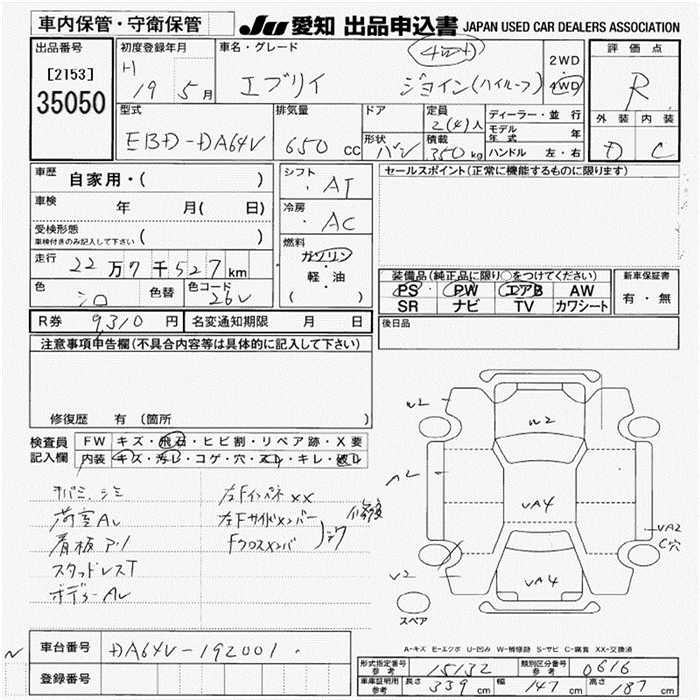 車内保管・守衛保管
JU 愛知 出品申込書 JAPAN USED CAR DEALERS ASSOCIATION
出品番号
[2153]
35050
初度登録年月
H 19 5月
車名・グレード
4WD
エブリイ ジョイン(ハイルーフ)
2WD
・
4WD
評価点
R
外装 内装
D C
型式
EBD-DA64V
排気量
650 cc
ドア
形状
バン
定員
2(4)人
積載
350kg
ディーラー・並行
モデル年式 年
ハンドル 左・右
車歴 自家用・( )
車検 年 月( 日)
受検形態
車検付きのみ記入して下さい ( )
走行 22万7千527km
色 シロ 色替 色コード 26V
シフト
・AT
冷房
・AC
燃料
ガソリン
・
軽・油
( )
セールスポイント(正常に機能するものに限ります)
装備品(純正品に限り○をつけてください)
PS PW エアB AW
SR ナビ TV カワシート
新車保証書
有・無
R券 9,310円 名変通知期限 月 日
後日品
注意事項申告欄(不具合内容等は具体的に記入して下さい)
修復歴 有(箇所 )
検査員
記入欄
FW キズ・飛石・ヒビ割・リペア跡・X要
内装 キズ・汚レ・コゲ・穴・スレ・キレ・破レ
荷室AU
看板アト
スタッドレスT
ボデーAU
左Fインパネ XX
左Fサイドメンバー
Fクロスメンバ
修復
W2
W2
VA4
VA2
C穴
V2
VA4
スペア
A-キズ E-エクボ U-凹み W-補修跡 S-サビ C-腐食 XX-交換済
車台番号 DA64V-192001
登録番号
形式指定番号
参考
15132
類別区分番号
参考
0616
車庫証明用
参考
長さ 339cm 幅 147cm 高さ 187cm